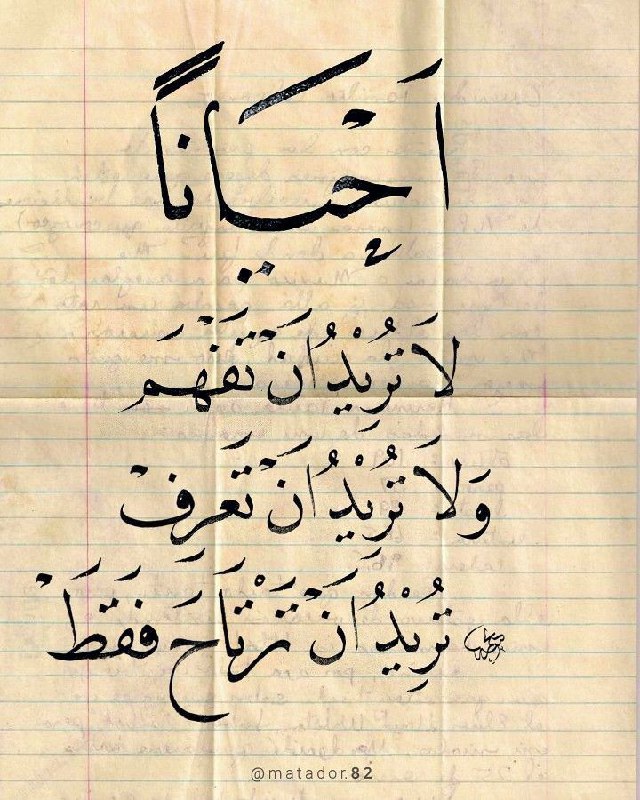 اَحْيَاناً
لَا تُرِيْدُ اَنْ تَفْهَم
وَلَا تُرِيْدُ اَنْ تَعْرِفْ
تُرِيْدُ اَنْ تَرْتَاحَ فَقَطْ
@matador.82